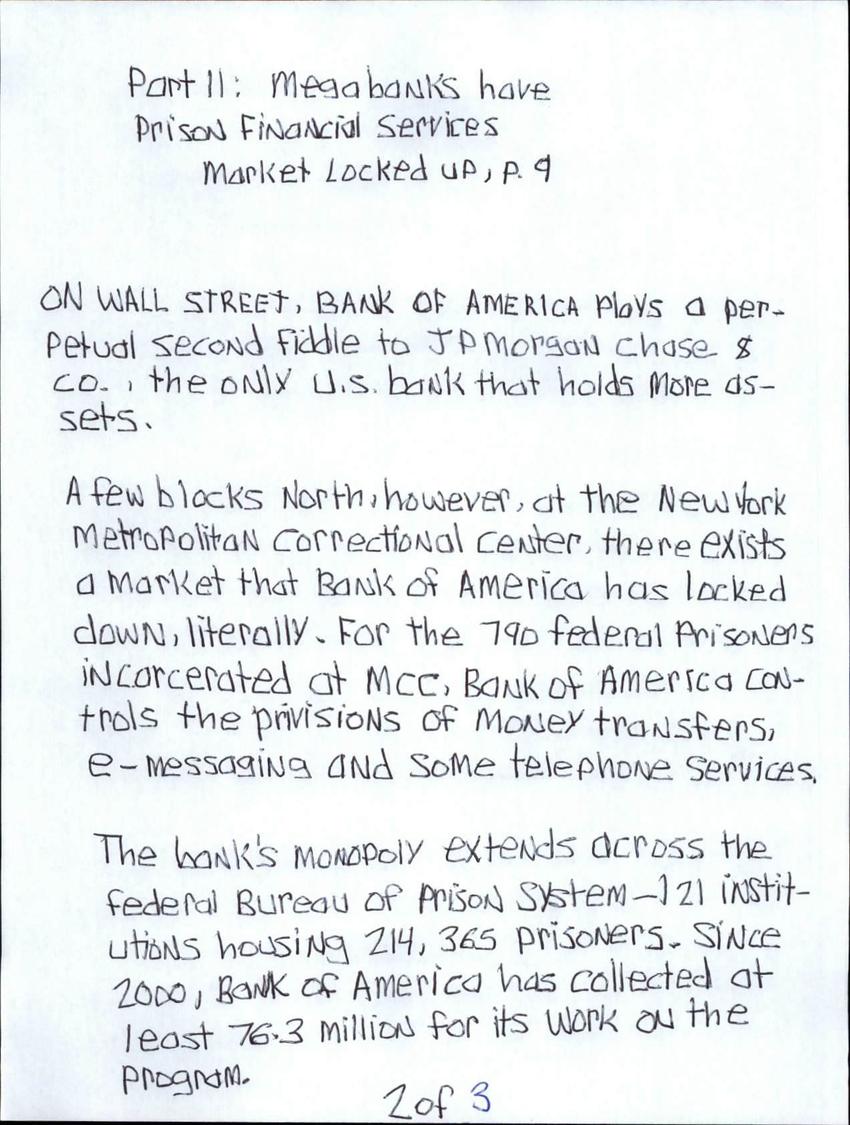 Part II: Megabanks have
Prison Financial Services
Market Locked up, p. 9
ON WALL STREET, BANK OF AMERICA plays a per-
petual second fiddle to JPMorgan Chase &
CO., the only U.S. bank that holds more as-
sets.
A few blocks North, however, at the New York
Metropolitan Correctional Center, there exists
a market that Bank of America has locked
down, literally. For the 790 federal Prisoners
incorcerated at MCC, Bank of America con-
trols the privisions of Money transfers,
e-messaging and some telephone services.
The bank's monopoly extends across the
federal Bureau of Prison System—121 instit-
utions housing 214, 365 prisoners. Since
2000, Bank of America has collected at
least 76.3 million for its work on the
program.
2 of 3